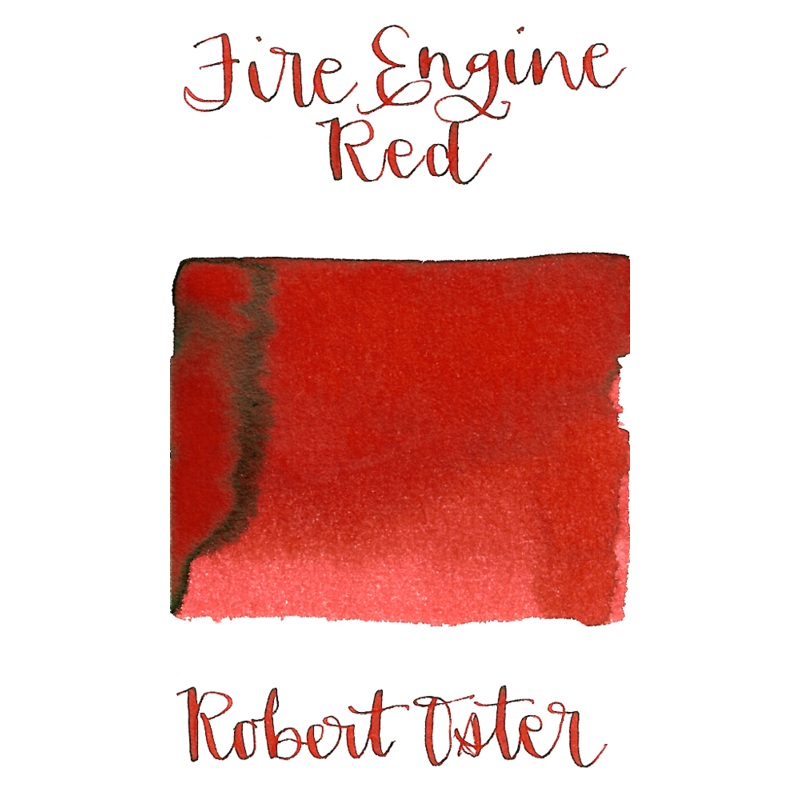 Fire Engine
Red
Robert Oster